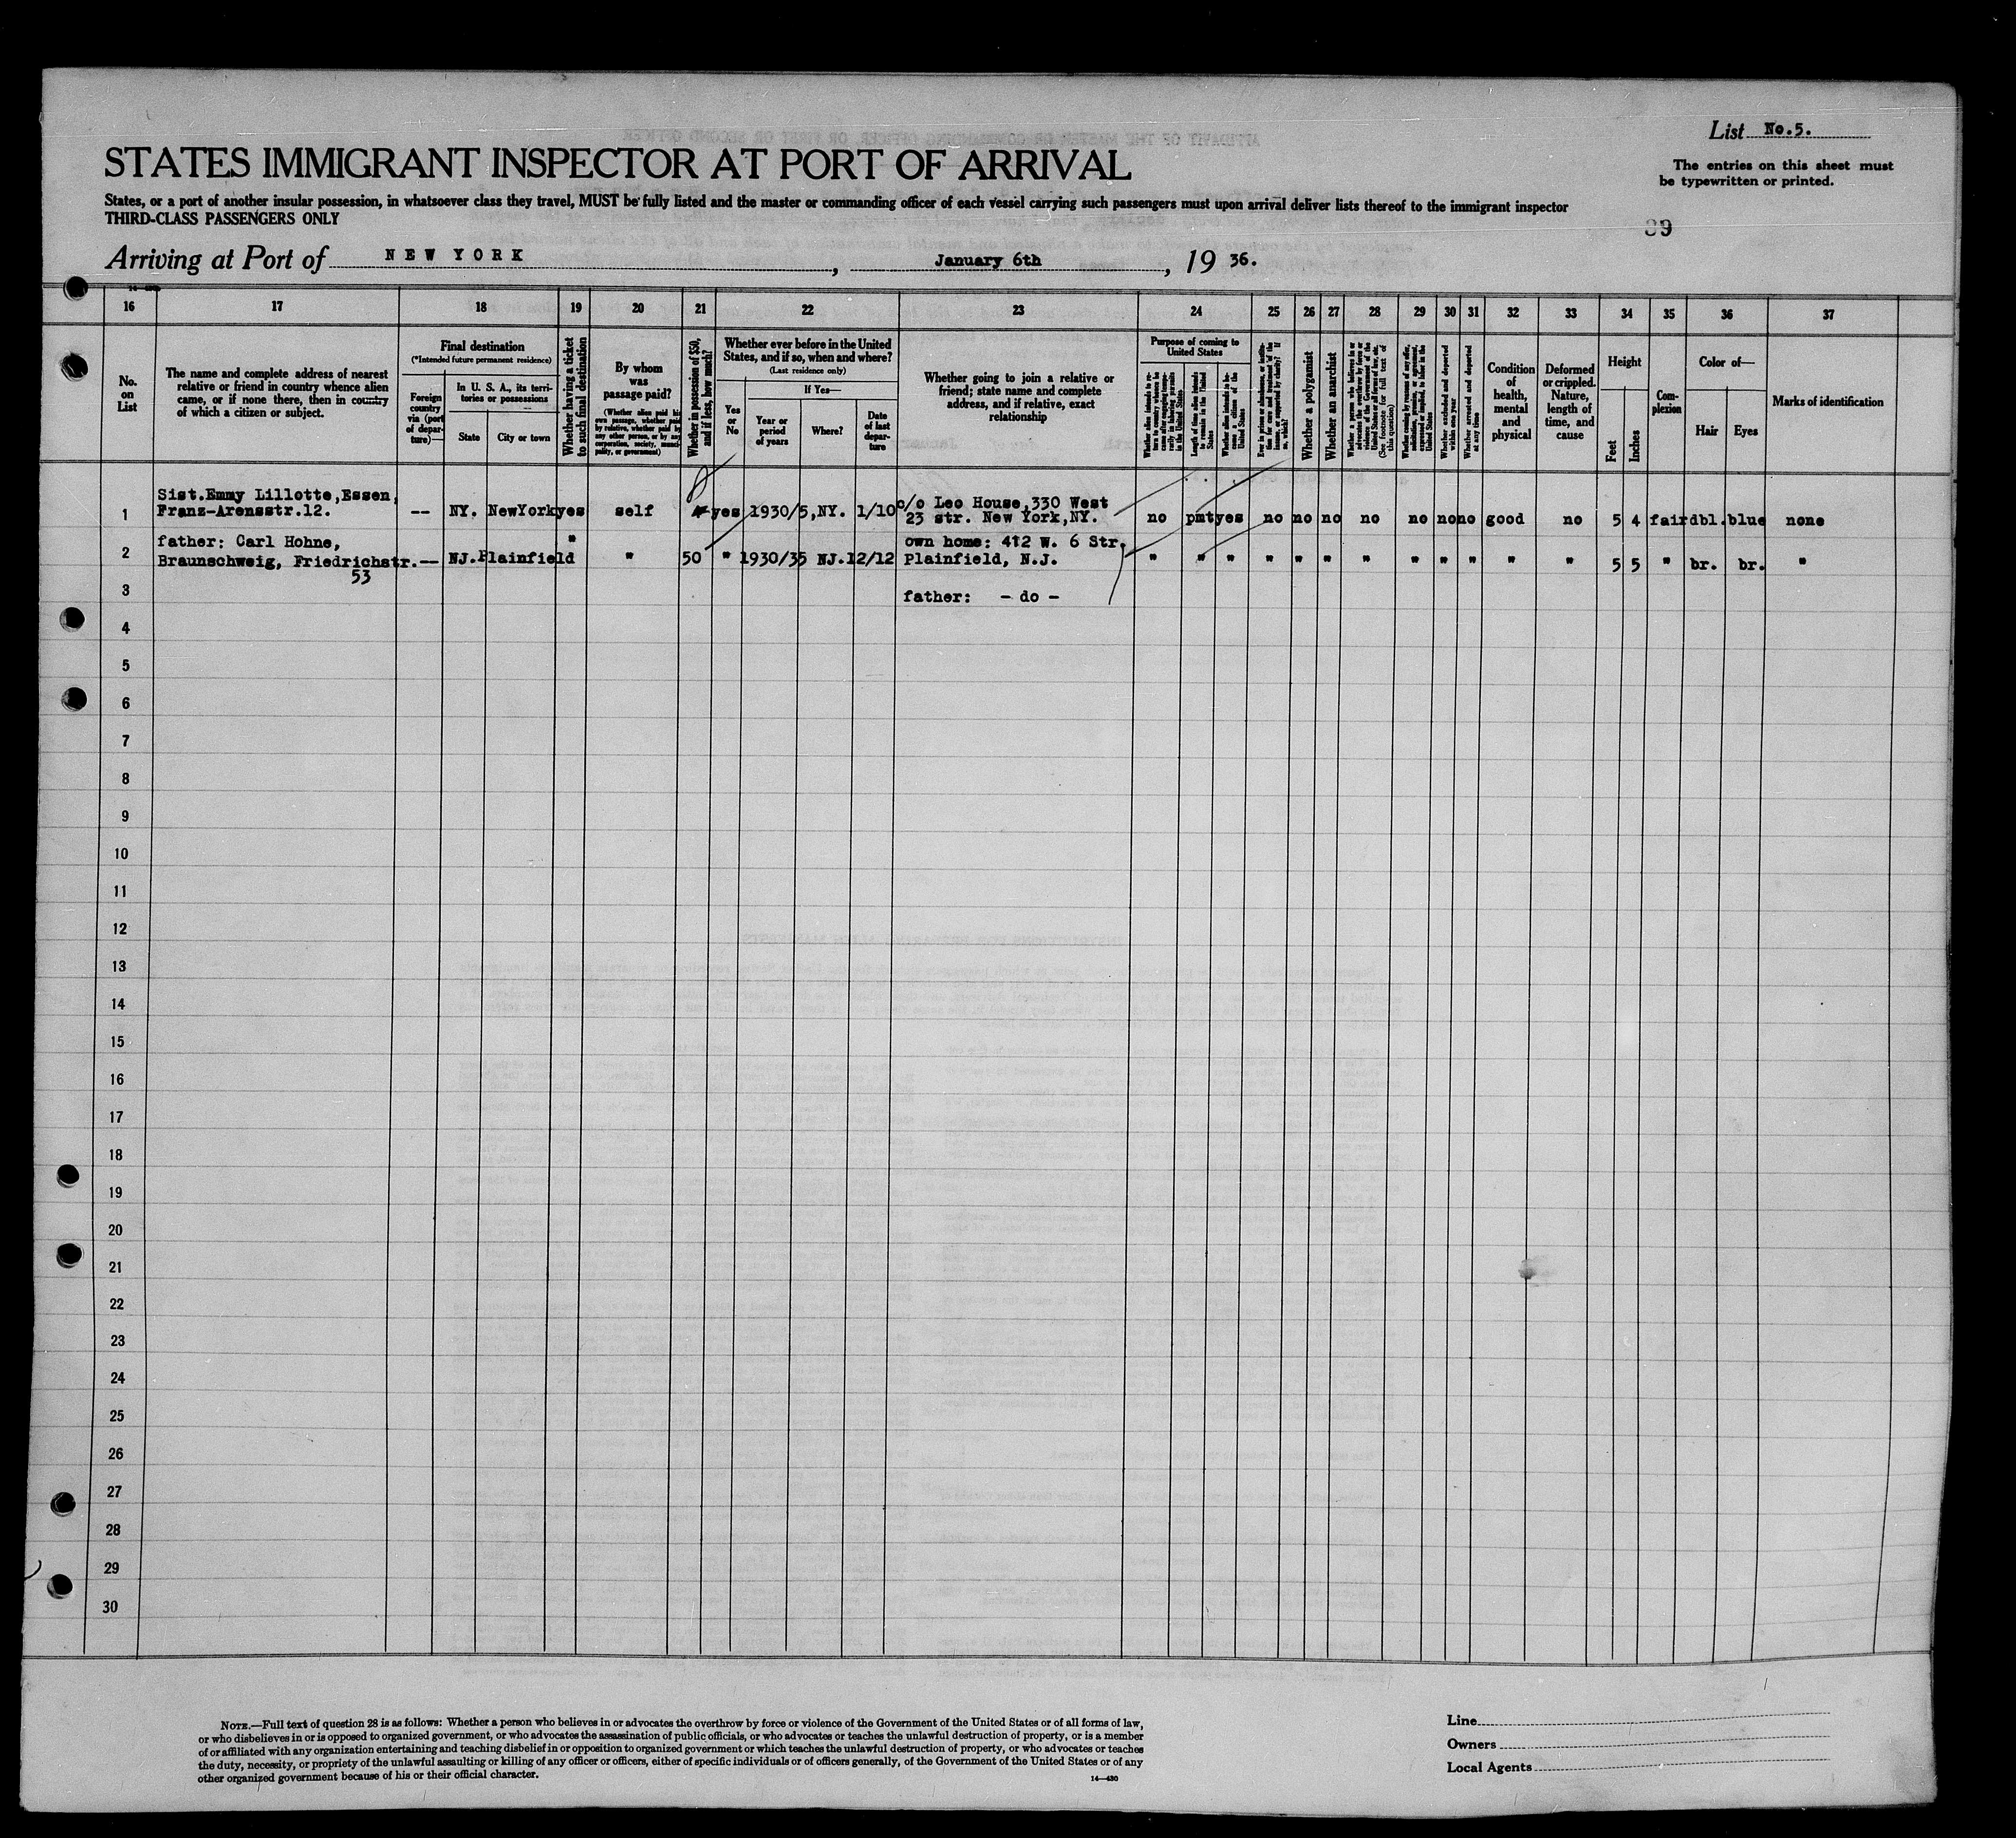 List No.5.
STATES IMMIGRANT INSPECTOR AT PORT OF ARRIVAL
The entries on this sheet must
be typewritten or printed.
States, or a port of another insular possession, in whatsoever class they travel, MUST be fully listed and the master or commanding officer of each vessel carrying such passengers must upon arrival deliver lists thereof to the immigrant inspector
THIRD-CLASS PASSENGERS ONLY
89
Arriving at Port of NEW YORK, January 6th, 19 36.
16 17 18 19 20 21 22 23 24 25 26 27 28 29 30 31 32 33 34 35 36 37
No. on List
The name and complete address of nearest
relative or friend in country whence alien
came, or if none there, then in country
of which a citizen or subject.
Final destination
(*Intended future permanent residence)
Foreign country via (port of departure)—
In U. S. A., its territories or possessions
State
City or town
Whether having a ticket to such final destination
By whom was passage paid?
(Whether alien paid his own passage, whether paid by relative, whether paid by any other person, or by any corporation, society, municipality, or government)
Whether in possession of $50, and if less, how much?
Whether ever before in the United
States, and if so, when and where?
(Last residence only)
Yes or No
If Yes—
Year or period of years
Where?
Date of last departure
Whether going to join a relative or
friend; state name and complete
address, and if relative, exact
relationship
Purpose of coming to United States
Length of time alien intends to remain in the United States
Whether alien intends to become a citizen of the United States
Whether a polygamist
Whether an anarchist
(See footnote for full text of this question)
Whether excluded and deported within one year
Whether arrested and deported at any time
Condition of health, mental and physical
Deformed or crippled. Nature, length of time, and cause
Height
Feet
Inches
Complexion
Color of—
Hair
Eyes
Marks of identification
1 Sist.Emmy Lillotte,Essen,
Franz-Arensstr.12. -- NY. NewYork yes self yes 1930/5,NY. 1/10 c/o Leo House,330 West
23 str. New York,NY. no pmt yes no no no no no no no good no 5 4 fair dbl. blue none
2 father: Carl Hohne,
Braunschweig, Friedrichstr. -- NJ. Plainfield " " 50 " 1930/35 NJ. 12/12 own home: 412 W. 6 Str.
Plainfield, N.J. " " " " " " " " " " " " 5 5 " br. br. "
53
3 father: - do -
4
5
6
7
8
9
10
11
12
13
14
15
16
17
18
19
20
21
22
23
24
25
26
27
28
29
30
NOTE.—Full text of question 28 is as follows: Whether a person who believes in or advocates the overthrow by force or violence of the Government of the United States or of all forms of law,
or who disbelieves in or is opposed to organized government, or who advocates the assassination of public officials, or who advocates or teaches the unlawful destruction of property, or is a member
of or affiliated with any organization entertaining and teaching disbelief in or opposition to organized government or which teaches the unlawful destruction of property, or who advocates or teaches
the duty, necessity, or propriety of the unlawful assaulting or killing of any officer or officers, either of specific individuals or of officers generally, of the Government of the United States or of any
other organized government because of his or their official character.
14—430
Line
Owners
Local Agents